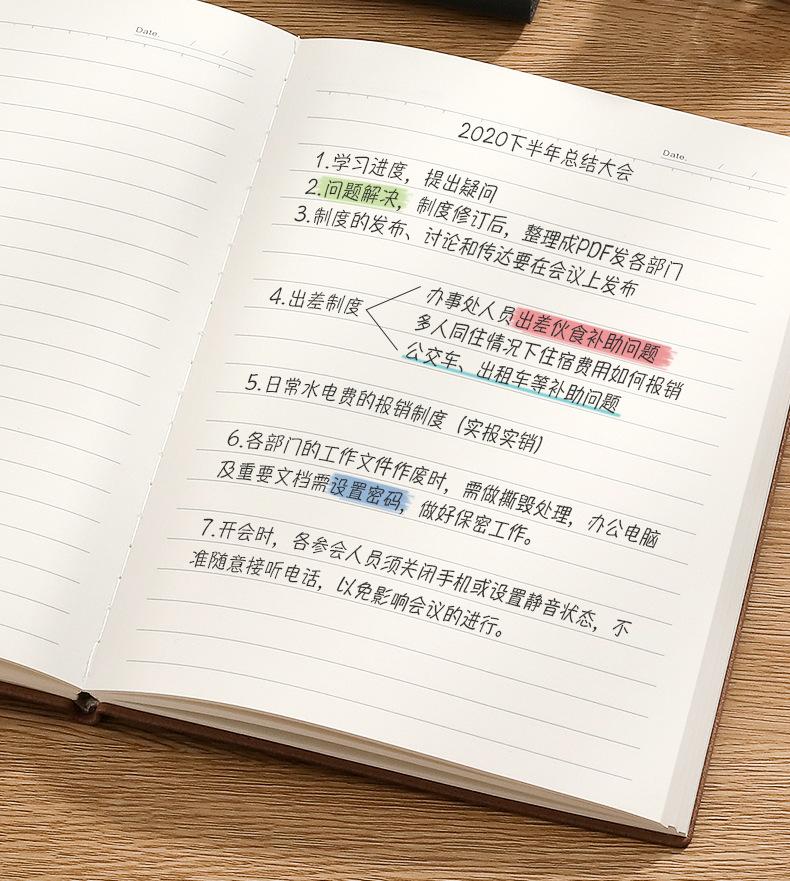 Date.
Date.
2020下半年总结大会
1.学习进度，提出疑问
2.问题解决，制度修订后，整理成PDF发各部门
3.制度的发布、讨论和传达要在会议上发布
4.出差制度
办事处人员出差伙食补助问题
多人同住情况下住宿费用如何报销
公交车、出租车等补助问题
5.日常水电费的报销制度（实报实销）
6.各部门的工作文件作废时，需做撕毁处理，办公电脑
及重要文档需设置密码，做好保密工作。
7.开会时，各参会人员须关闭手机或设置静音状态，不
准随意接听电话，以免影响会议的进行。